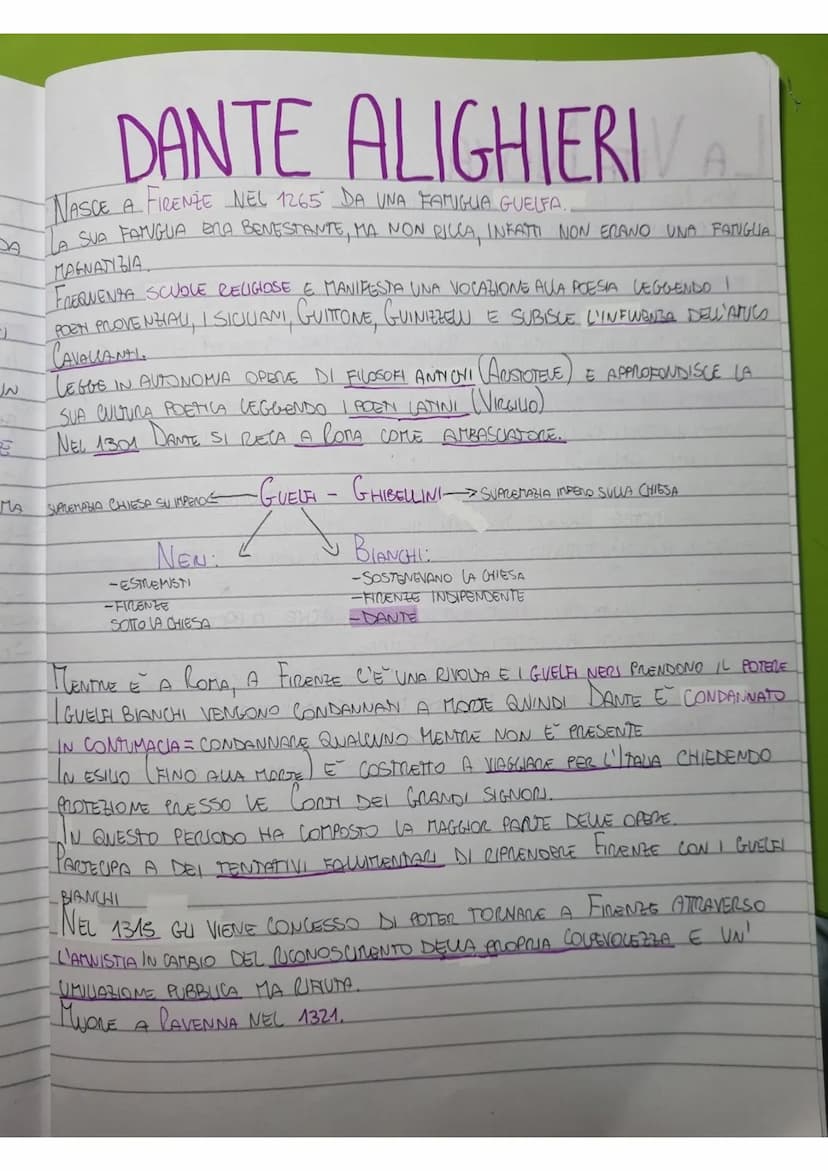 DANTE ALIGHIERI
NASCE A FIRENZE NEL 1265 DA UNA FAMIGLIA GUELFA.
LA SUA FAMIGLIA ERA BENESTANTE, MA NON RICCA, INFATTI NON ERANO UNA FAMIGLIA
MAGNATIZIA.
FREQUENTA SCUOLE RELIGIOSE E MANIFESTA UNA VOCAZIONE ALLA POESIA LEGGENDO I
POETI PROVENZIALI, I SICILIANI, GUITTONE, GUINIZZELLI E SUBISCE L'INFLUENZA DELL'AMICO
CAVALCANTI.
LEGGE IN AUTONOMIA OPERE DI FILOSOFI ANTICHI (ARISTOTELE) E APPROFONDISCE LA
SUA CULTURA POETICA LEGGENDO I POETI LATINI (VIRGILIO)
NEL 1301 DANTE SI RECA A ROMA COME AMBASCIATORE.
SUPREMAZIA CHIESA SU IMPERO ← GUELFI - GHIBELLINI → SUPREMAZIA IMPERO SULLA CHIESA
NERI: BIANCHI:
-ESTREMISTI -SOSTENEVANO LA CHIESA
-FIRENZE -FIRENZE INDIPENDENTE
SOTTO LA CHIESA -DANTE
MENTRE E' A ROMA, A FIRENZE C'E' UNA RIVOLTA E I GUELFI NERI PRENDONO IL POTERE
I GUELFI BIANCHI VENGONO CONDANNATI A MORTE QUINDI DANTE E' CONDANNATO
IN CONTUMACIA = CONDANNARE QUALCUNO MENTRE NON E' PRESENTE
IN ESILIO (FINO ALLA MORTE) E' COSTRETTO A VIAGGIARE PER L'ITALIA CHIEDENDO
PROTEZIONE PRESSO LE CORTI DEI GRANDI SIGNORI.
IN QUESTO PERIODO HA COMPOSTO LA MAGGIOR PARTE DELLE OPERE.
PARTECIPA A DEI TENTATIVI FALLIMENTARI DI RIPRENDERE FIRENZE CON I GUELFI
BIANCHI
NEL 1315 GLI VIENE CONCESSO DI POTER TORNARE A FIRENZE ATTRAVERSO
L'AMNISTIA IN CAMBIO DEL RICONOSCIMENTO DELLA PROPRIA COLPEVOLEZZA E UN'
UMILIAZIONE PUBBLICA MA RIFIUTA.
MUORE A RAVENNA NEL 1321.